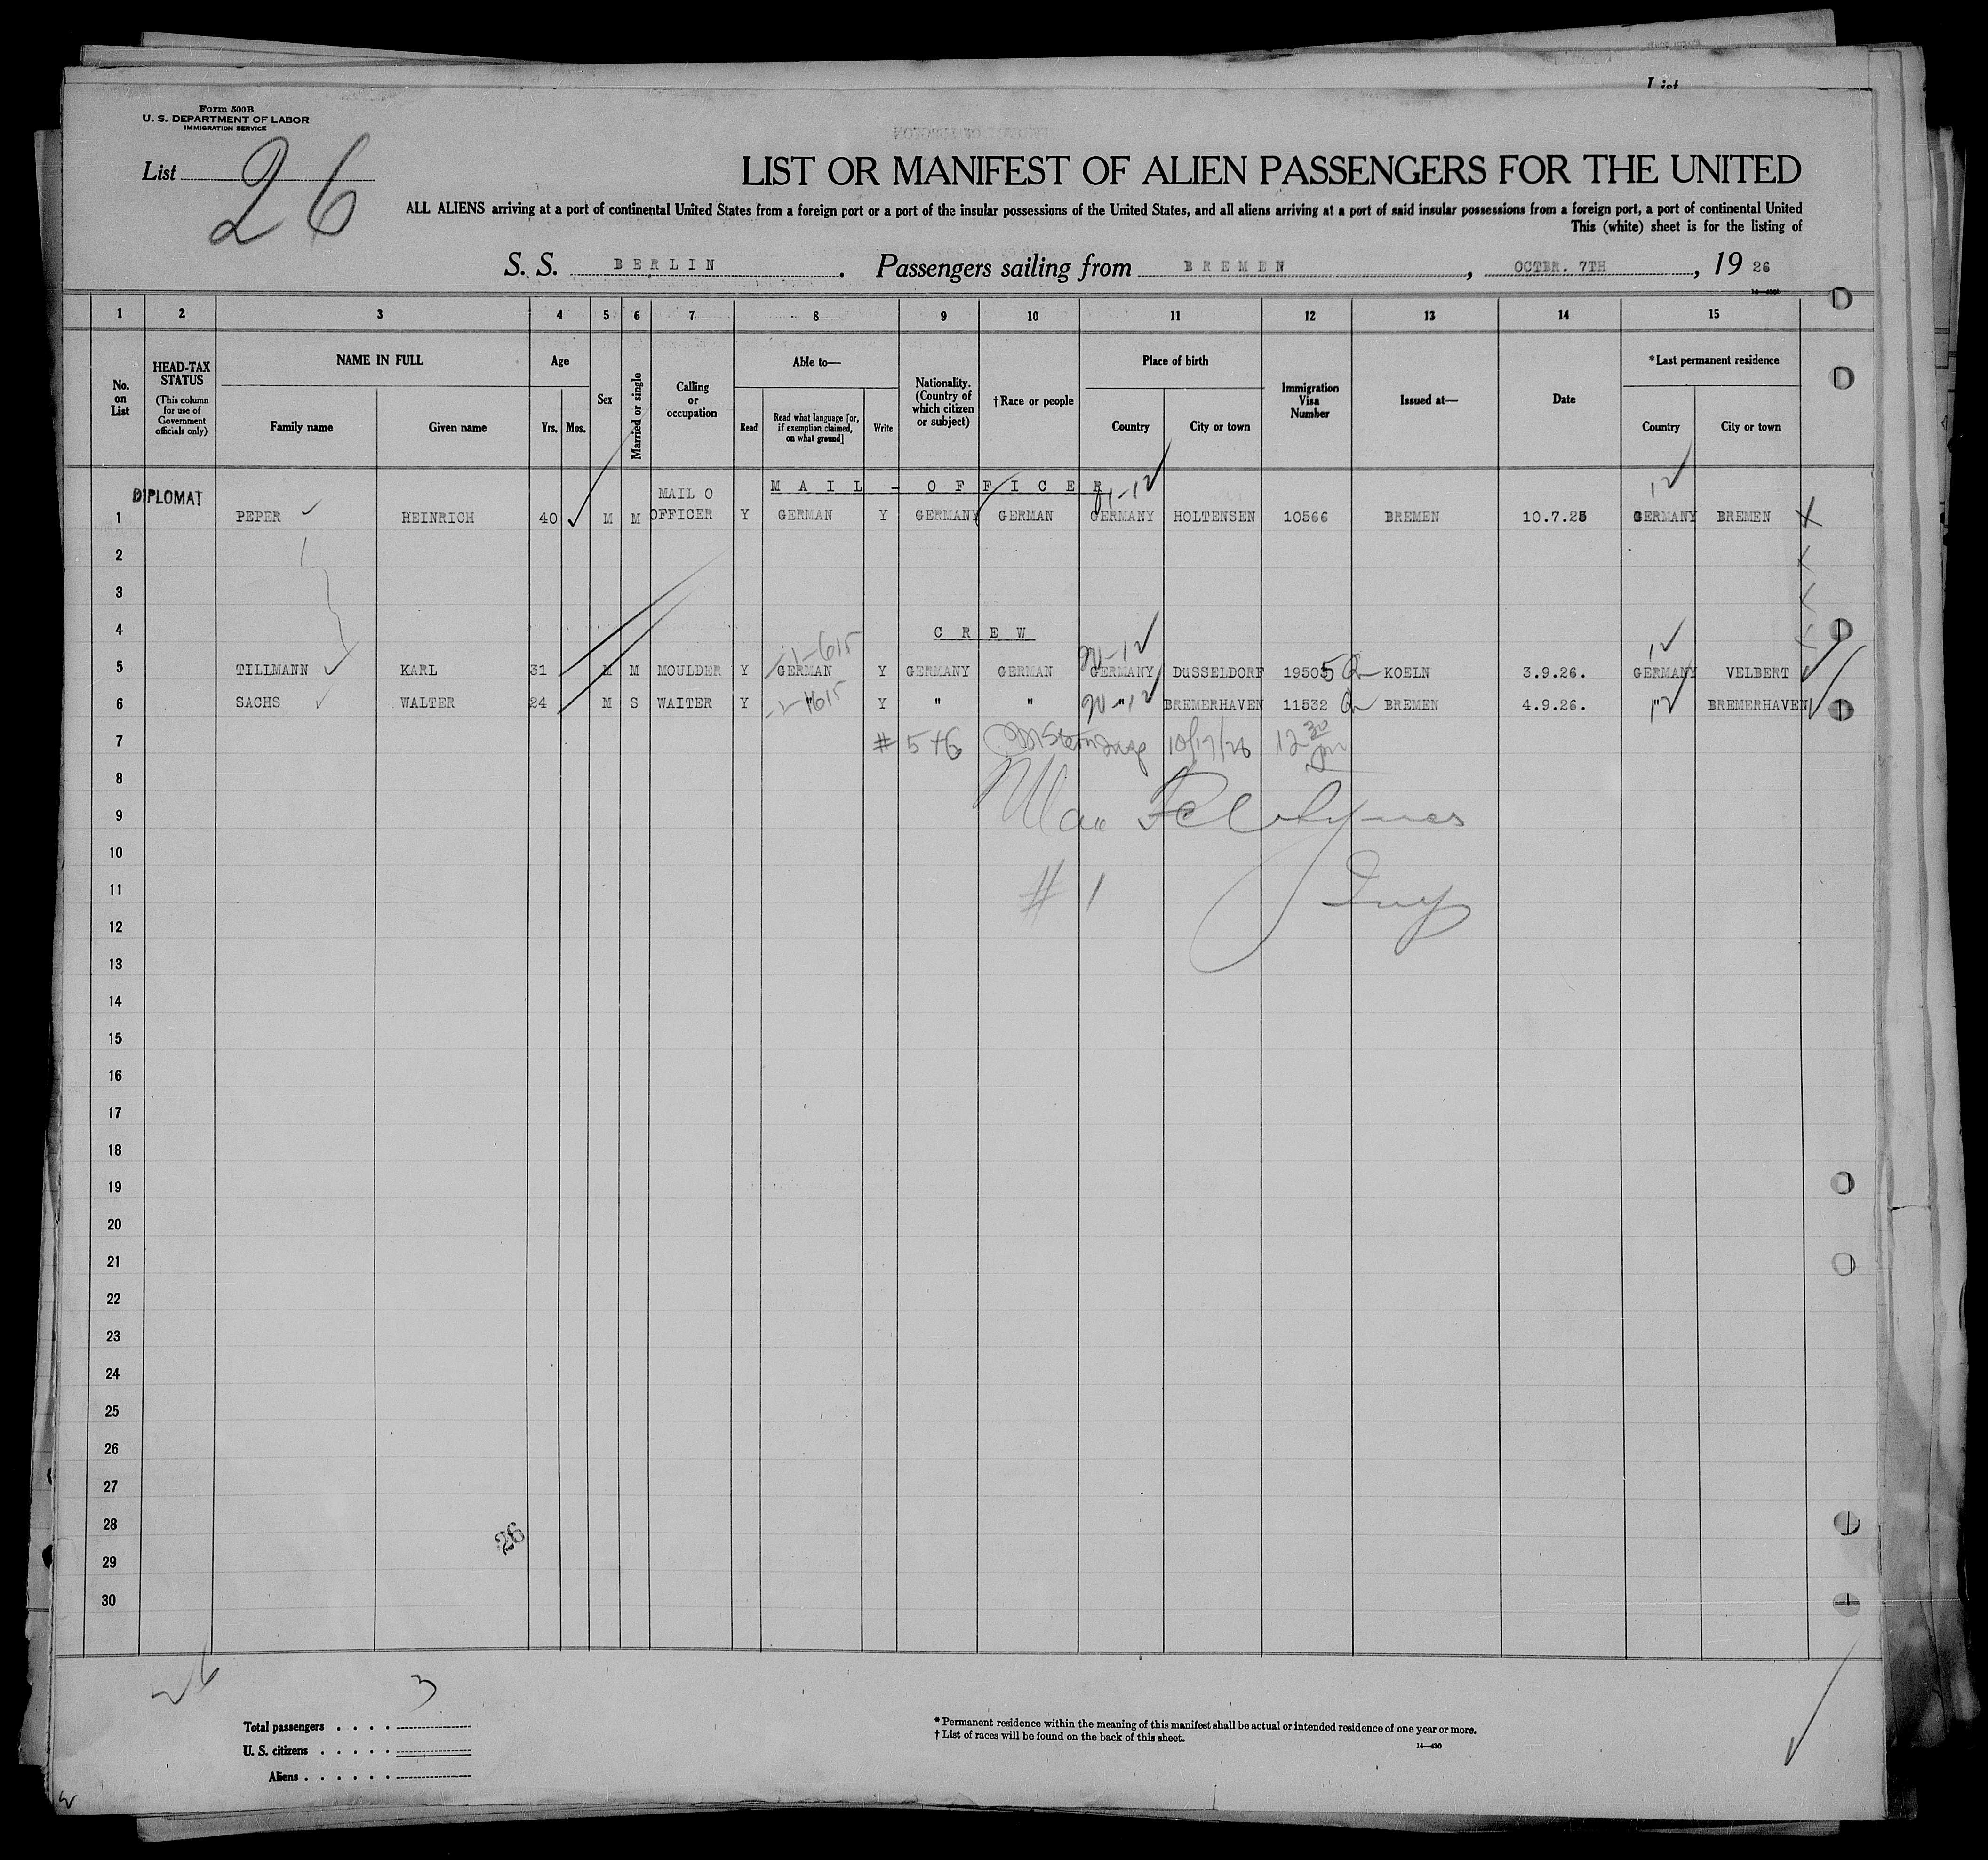 List
Form 500B
U. S. DEPARTMENT OF LABOR
IMMIGRATION SERVICE
List 26
LIST OR MANIFEST OF ALIEN PASSENGERS FOR THE UNITED
ALL ALIENS arriving at a port of continental United States from a foreign port or a port of the insular possessions of the United States, and all aliens arriving at a port of said insular possessions from a foreign port, a port of continental United
This (white) sheet is for the listing of
S. S. BERLIN. Passengers sailing from BREMEN, OCTBR. 7TH, 19 26
1 2 3 4 5 6 7 8 9 10 11 12 13 14 15
No. on List
HEAD-TAX STATUS
(This column for use of Government officials only)
NAME IN FULL
Family name
Given name
Age
Yrs.
Mos.
Sex
Married or single
Calling or occupation
Able to—
Read
Read what language [or, if exemption claimed, on what ground]
Write
Nationality. (Country of which citizen or subject)
†Race or people
Place of birth
Country
City or town
Immigration Visa Number
Issued at—
Date
*Last permanent residence
Country
City or town
MAIL - OFFICER
DIPLOMAT
1 PEPER HEINRICH 40 M M MAIL O OFFICER Y GERMAN Y GERMANY GERMAN GERMANY HOLTENSEN 10566 BREMEN 10.7.25 GERMANY BREMEN X
2
3
4 CREW
5 TILLMANN KARL 31 M M MOULDER Y GERMAN Y GERMANY GERMAN GERMANY DüSSELDORF 19505 KOELN 3.9.26. GERMANY VELBERT
6 SACHS WALTER 24 M S WAITER Y " Y " " " BREMERHAVEN 11532 BREMEN 4.9.26. " BREMERHAVEN
7 # 5+6 10/17/26 12 30
8
9
10
11 # 1
12
13
14
15
16
17
18
19
20
21
22
23
24
25
26
27
28 26
29
30
26 3
Total passengers
U. S. citizens
Aliens
* Permanent residence within the meaning of this manifest shall be actual or intended residence of one year or more.
† List of races will be found on the back of this sheet.
14—430